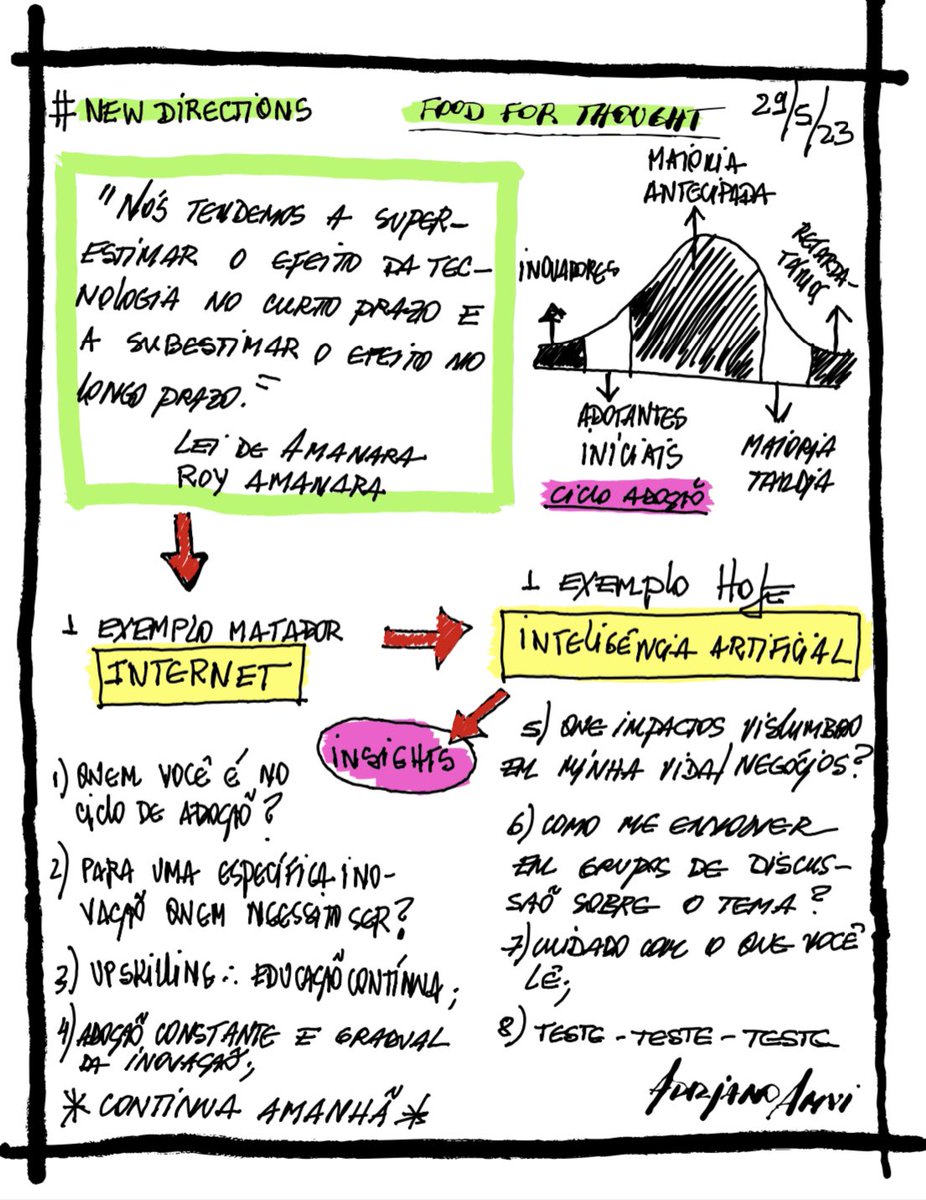 # NEW DIRECTIONS
FOOD FOR THOUGHT
29/5/23
"NÓS TENDEMOS A SUPER-
ESTIMAR O EFEITO DA TEC-
NOLOGIA NO CURTO PRAZO E
A SUBESTIMAR O EFEITO NO
LONGO PRAZO."
LEI DE AMANARA
ROY AMANARA
MAIORIA
ANTECIPADA
INOVADORES
RETARDA-
TÁRIOS
ADOTANTES
INICIAIS
MAIORIA
TARDIA
CICLO ADOÇÃO
1 EXEMPLO MATADOR
INTERNET
1 EXEMPLO HOJE
INTELIGÊNCIA ARTIFICIAL
INSIGHTS
1) QUEM VOCÊ É NO
CICLO DE ADOÇÃO?
2) PARA UMA ESPECÍFICA INO-
VAÇÃO QUEM NECESSITO SER?
3) UPSKILLING ∴ EDUCAÇÃO CONTÍNUA;
4) ADOÇÃO CONSTANTE E GRADUAL
DA INOVAÇÃO;
* CONTINUA AMANHÃ *
5) QUE IMPACTOS VISLUMBRO
EM MINHA VIDA/NEGÓCIOS?
6) COMO ME ENVOLVER
EM GRUPOS DE DISCUS-
SÃO SOBRE O TEMA?
7) CUIDADO COM O QUE VOCÊ
LÊ;
8) TESTE - TESTE - TESTE
ADRIANO